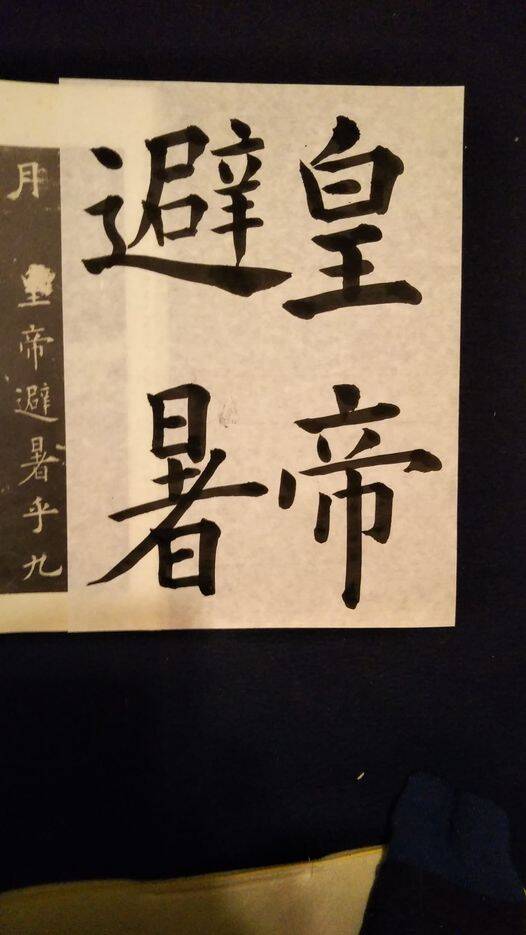 皇帝
避暑
月 皇帝避暑乎九